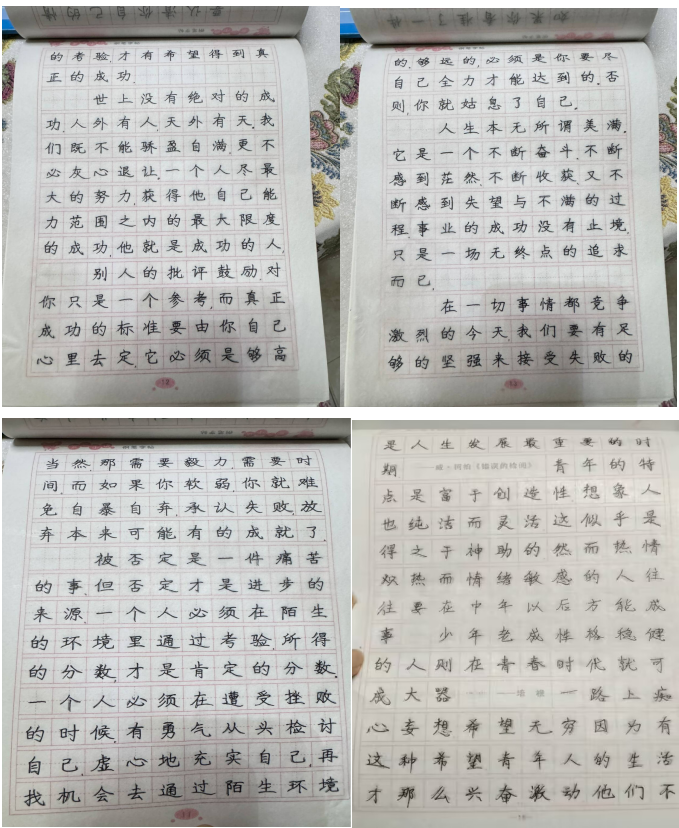 的考验才有希望得到真
正的成功.
世上没有绝对的成
功.人外有人.天外有天.我
们既不能骄盈自满.更不
必友心退让.一个人尽最
大的努力.获得他自己能
力范围之内的最大限度
的成功.他就是成功的人.
别人的批评鼓励对
你只是一个参考.而真正
成功的标准要由你自己
心里去定.它必须是够高
的.够远的.必须是你要尽
自己全力才能达到的.否
则.你就姑息了自己.
人生本无所谓美满.
它是一个不断奋斗.不断
感到茫然.不断收获.又不
断感到失望与不满的过
程.事业的成功没有止境.
只是一场无终点的追求
而已.
在一切事情都竞争
激烈的今天.我们要有足
够的坚强来接受失败的
当然那需要毅力.需要时
间.而如果你软弱.你就难
免自暴自弃.承认失败.放
弃本来可能有的成就了.
被否定是一件痛苦
的事.但否定才是进步的
来源.一个人必须在陌生
的环境里通过考验.所得
的分数.才是肯定的分数.
一个人必须在遭受挫败
的时候.有勇气从头检讨
自己.虚心地充实自己.再
找机会去通过陌生环境
是人生发展最重要的时
期 青年的特
点是富于创造性想象人
也纯洁而灵活这似乎是
得之于神助的然而热情
炽热而情绪敏感的人往
往要在中年以后方能成
事 少年老成性格稳健
的人则在青春时代就可
成大器 培根 一路上痴
心妄想希望无穷因为有
这种希望青年人的生活
才那么兴奋激动他们不